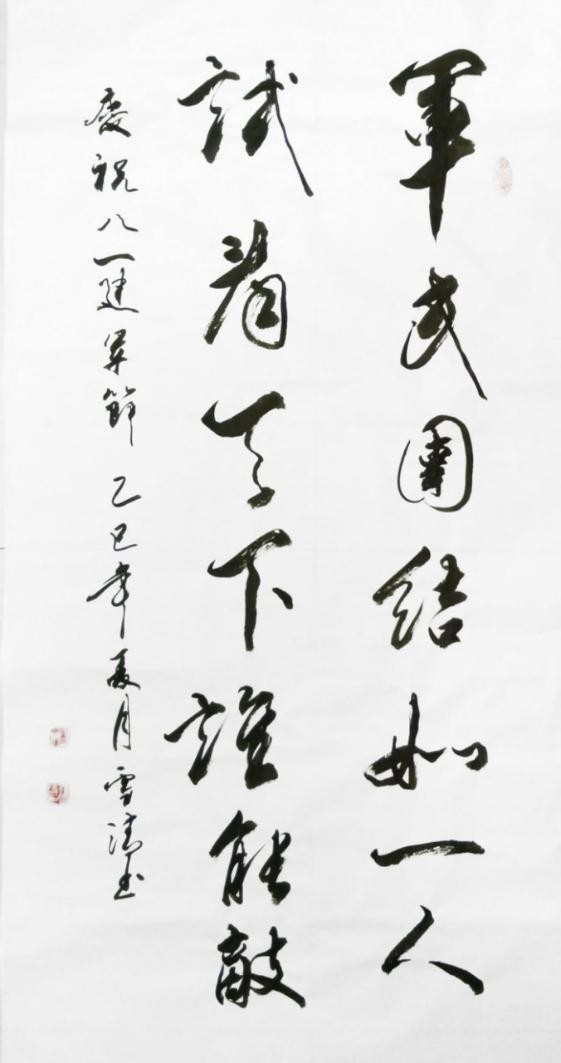 軍民團結如一人
試看天下誰能敵
慶祝八一建軍節 乙巳年夏月雪清書